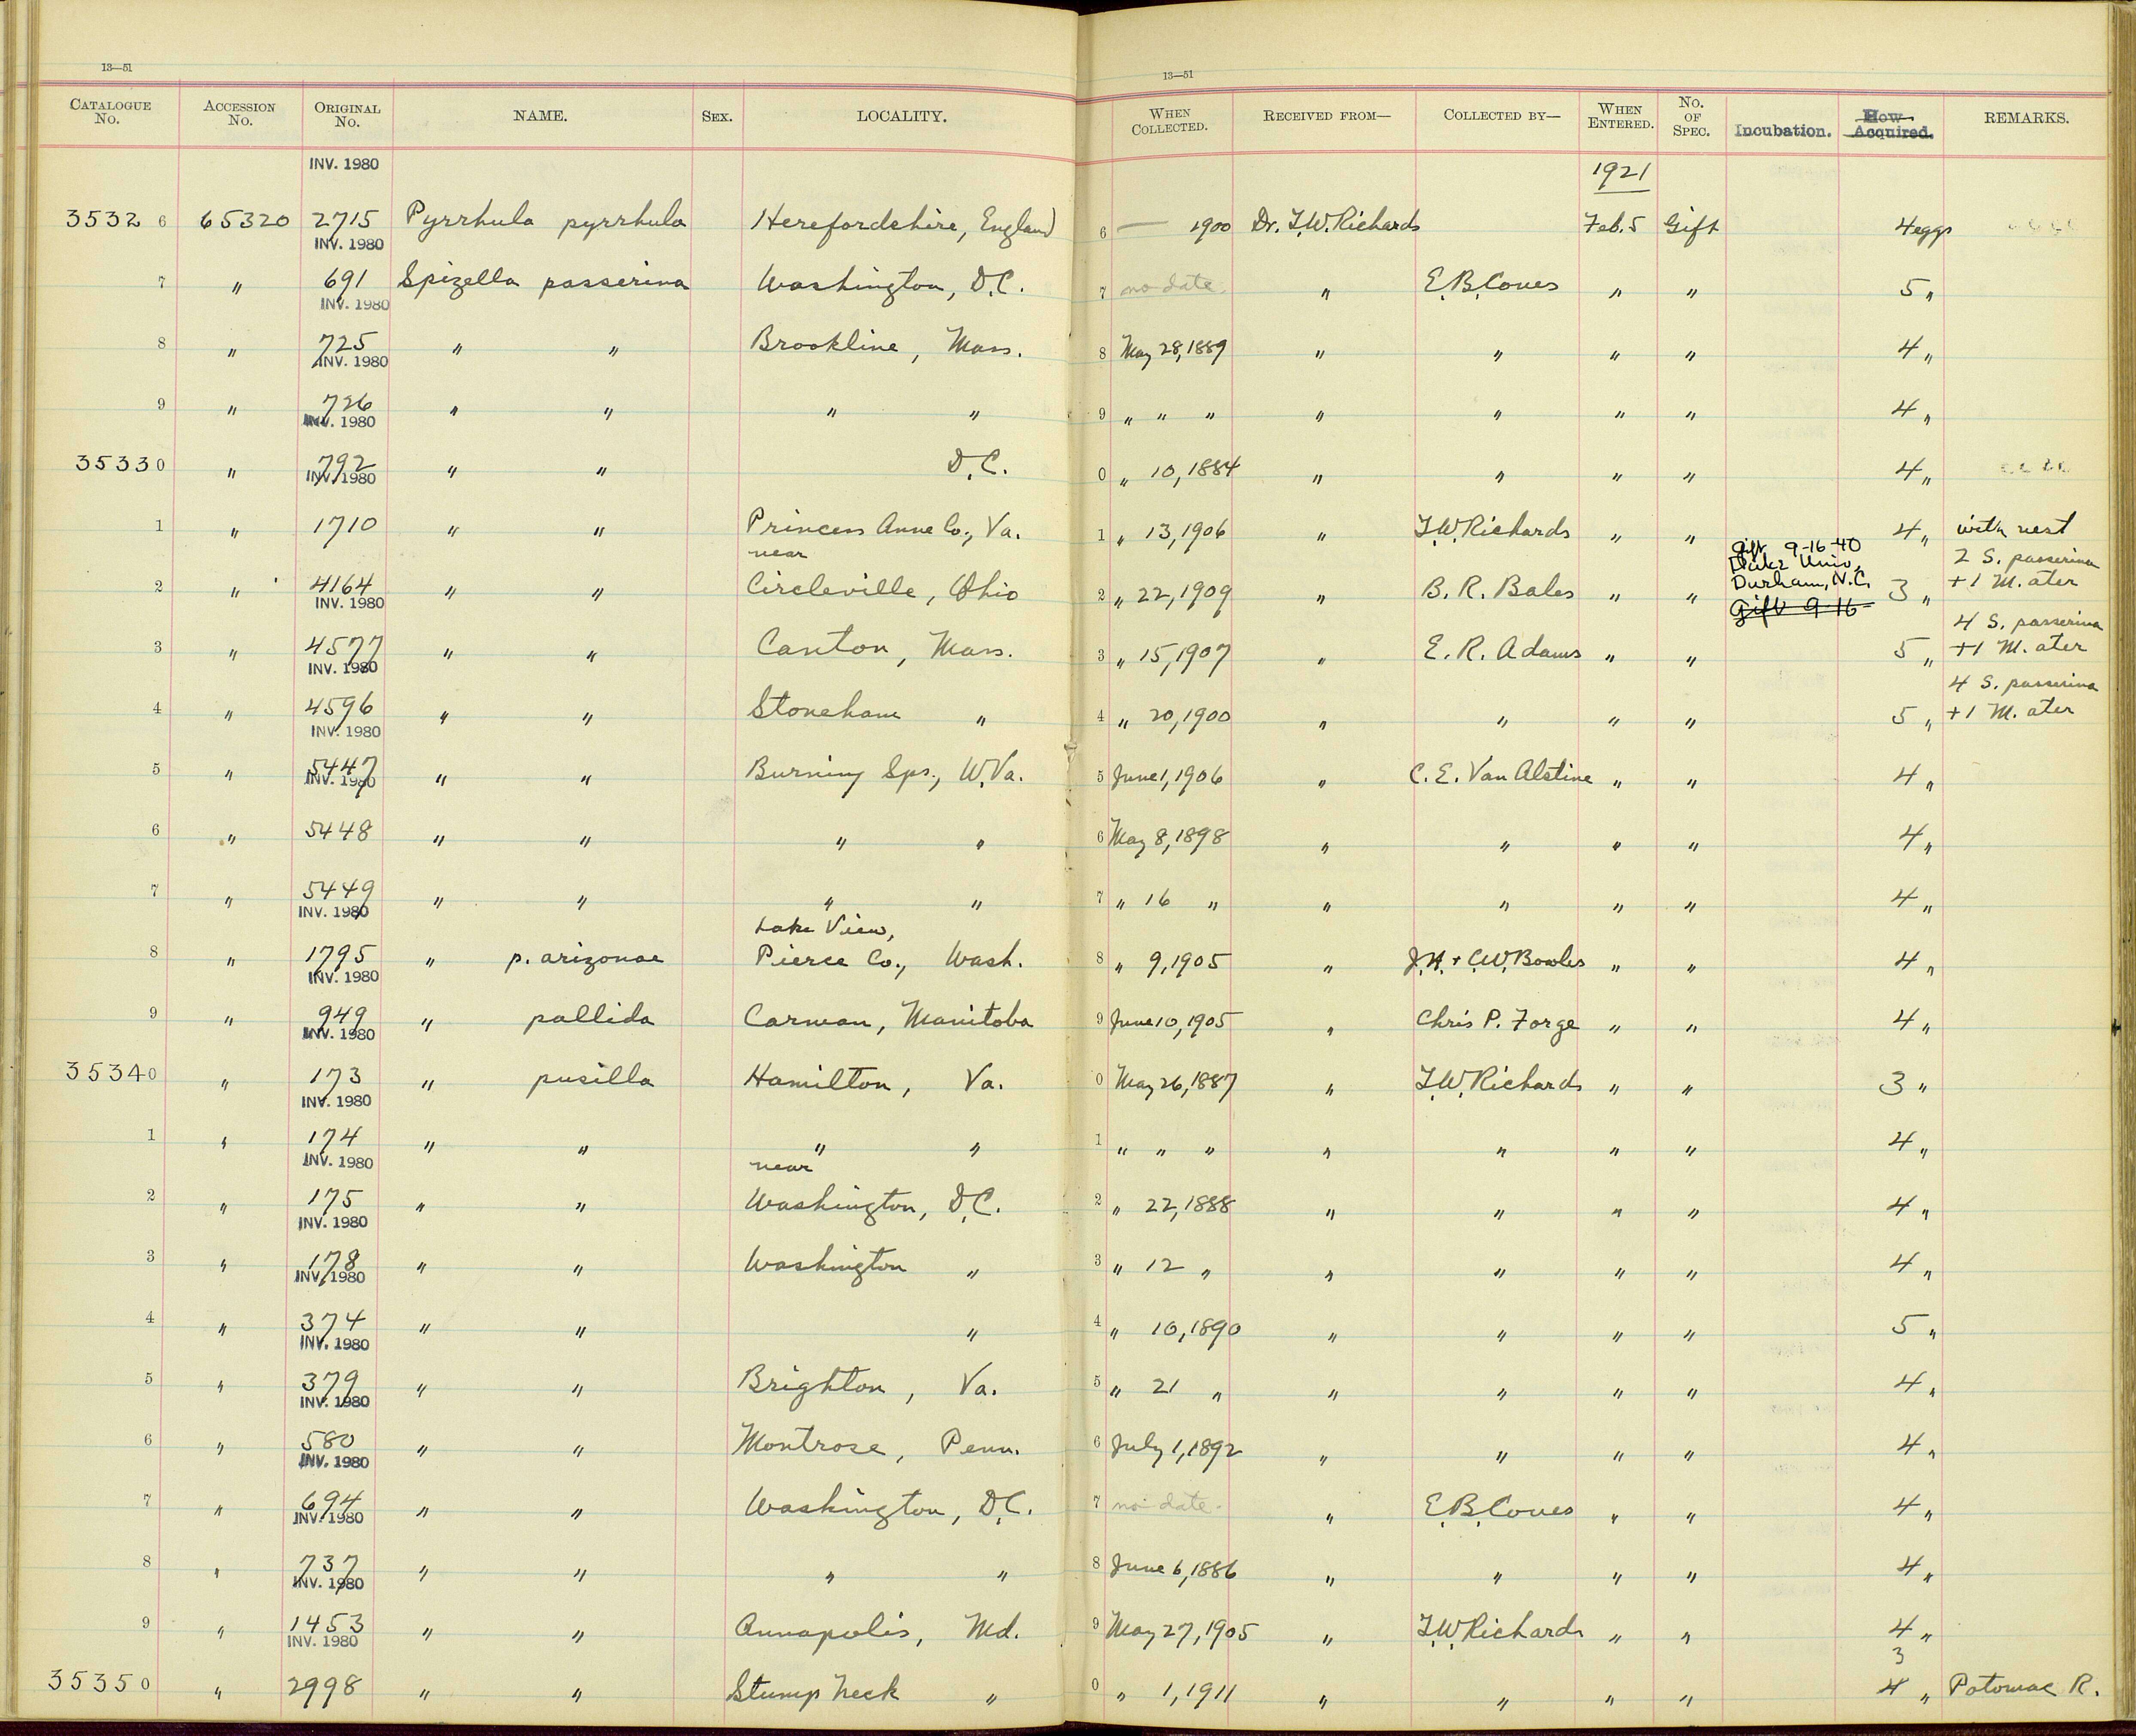 13—51 13—51
CATALOGUE No. ACCESSION No. ORIGINAL No. NAME. SEX. LOCALITY. WHEN COLLECTED. RECEIVED FROM— COLLECTED BY— WHEN ENTERED. No. OF SPEC. Incubation. How Acquired. REMARKS.
INV. 1980 1921
3532 6 65320 2715 Pyrrhula pyrrhula Herefordshire, England 6 — 1900 Dr. T.W. Richards Feb. 5 Gift 4 eggs
INV. 1980
7 " 691 Spizella passerina Washington, D.C. 7 no date. " E.B. Coues " " 5 "
INV. 1980
8 " 725 " " Brookline, Mass. 8 May 28, 1889 " " " " 4 "
INV. 1980
9 " 726 " " " " 9 " " " " " " " 4 "
INV. 1980
35330 " 792 " " D.C. 0 " 10, 1884 " " " " 4 "
INV. 1980
1 " 1710 " " Princess Anne Co., Va. 1 " 13, 1906 " T.W. Richards " " 4 " with nest
near Gift 9-16-40 2 S. passerina
2 " 4164 " " Circleville, Ohio 2 " 22, 1909 " B. R. Bales " " Duke Univ., Durham, N.C. 3 " +1 M. ater
INV. 1980 Gift 9-16-
4 S. passerina
3 " 4577 " " Canton, Mass. 3 " 15, 1907 " E. R. Adams " " 5 " +1 M. ater
INV. 1980
4 S. passerina
4 " 4596 " " Stoneham " 4 " 20, 1900 " " " " 5 " +1 M. ater
INV. 1980
5 " 5447 " " Burning Sps., W.Va. 5 June 1, 1906 " C. E. Van Alstine " " 4 "
INV. 1980
6 " 5448 " " " " 6 May 8, 1898 " " " " 4 "
7 " 5449 " " " " 7 " 16 " " " " " 4 "
INV. 1980
Lake View,
8 " 1795 " p. arizonae Pierce Co., Wash. 8 " 9, 1905 " J.H. + C.W. Bowles " " 4 "
INV. 1980
9 " 949 " pallida Carman, Manitoba 9 June 10, 1905 " Chris P. Forge " " 4 "
INV. 1980
35340 " 173 " pusilla Hamilton, Va. 0 May 26, 1887 " T.W. Richards " " 3 "
INV. 1980
1 " 174 " " " " 1 " " " " " " " 4 "
INV. 1980
near
2 " 175 " " Washington, D.C. 2 " 22, 1888 " " " " 4 "
INV. 1980
3 " 178 " " Washington " 3 " 12 " " " " " 4 "
INV. 1980
4 " 374 " " " 4 " 10, 1890 " " " " 5 "
INV. 1980
5 " 379 " " Brighton, Va. 5 " 21 " " " " " 4 "
INV. 1980
6 " 580 " " Montrose, Penn. 6 July 1, 1892 " " " " 4 "
INV. 1980
7 " 694 " " Washington, D.C. 7 no date. " E.B. Coues " " 4 "
INV. 1980
8 " 737 " " " " 8 June 6, 1886 " " " " 4 "
INV. 1980
9 " 1453 " " Annapolis, Md. 9 May 27, 1905 " T.W. Richards " " 4 "
INV. 1980
3
35350 " 2998 " " Stump Neck " 0 " 1, 1911 " " " " 4 " Potomac R.